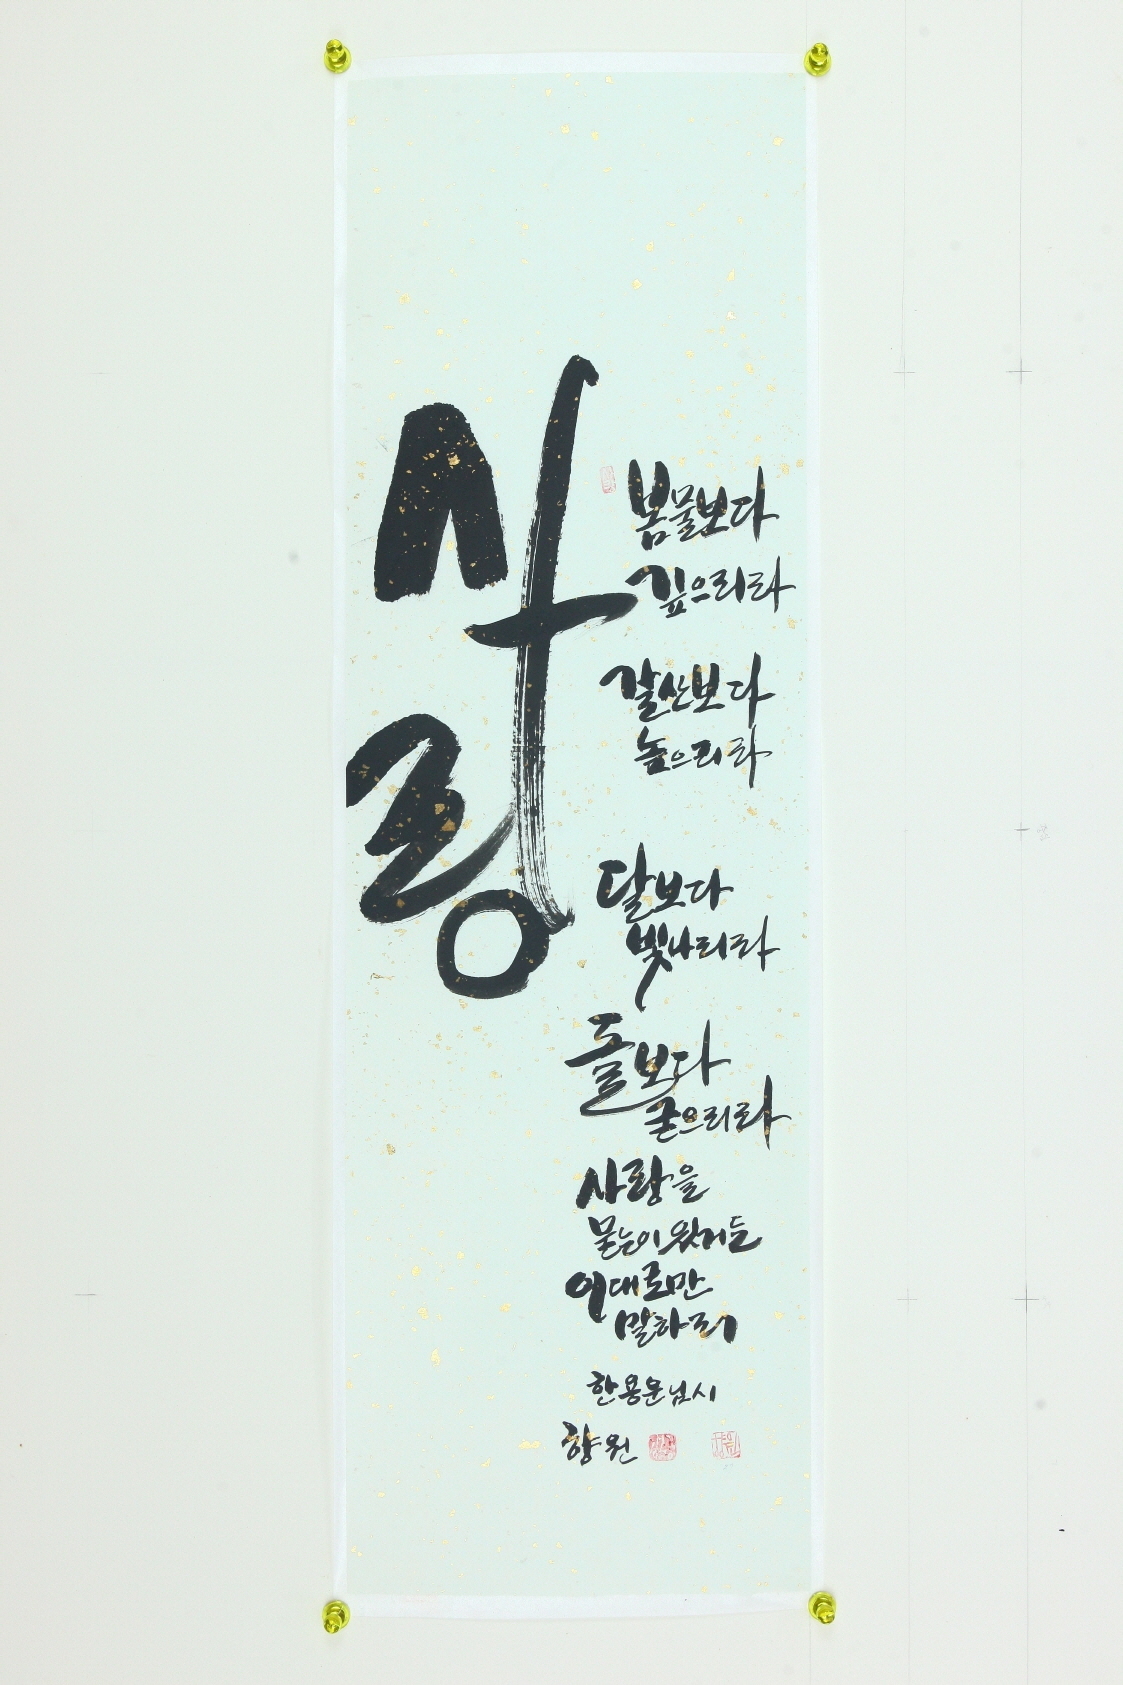 사랑
봄물보다
깊으리라
갈산보다
높으리라
달보다
빛나리라
돌보다
굳으리라
사랑을
묻는이 왔거든
이대로만
말하리
한용운님시
향원